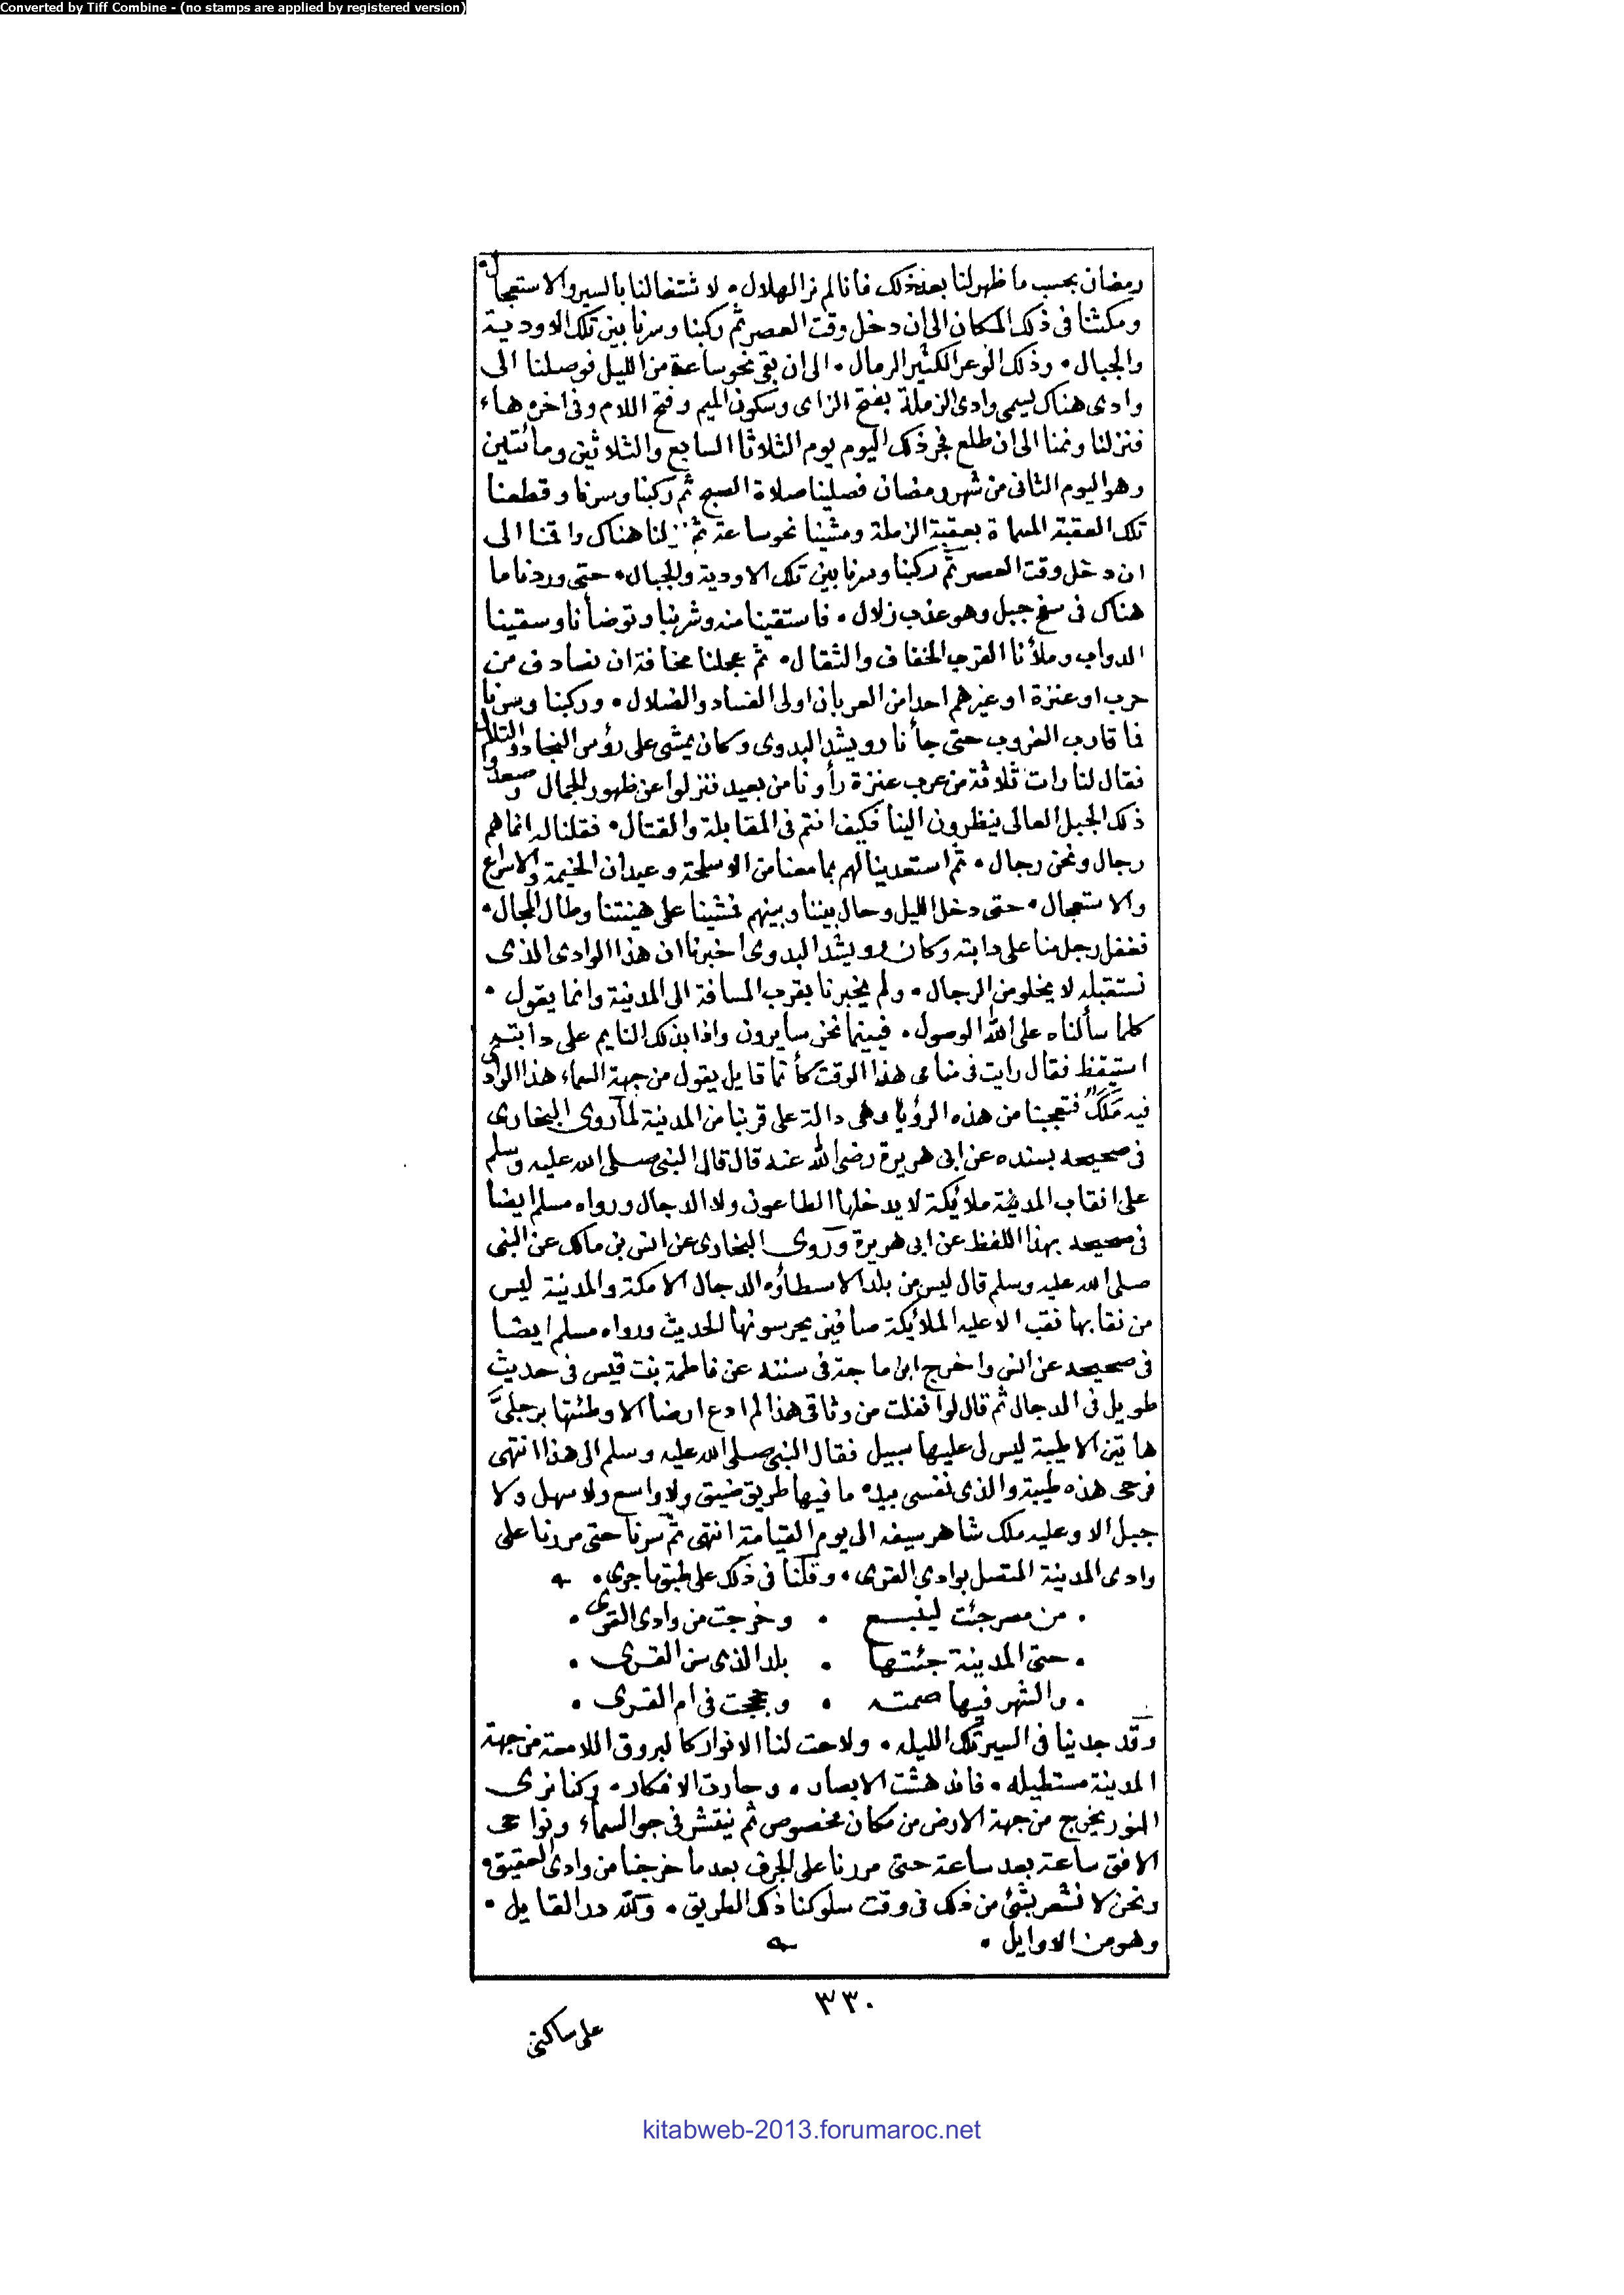 Converted by Tiff Combine - (no stamps are applied by registered version)
رمضان بحسب ما ظهر لنا بعد ذلك فانا لم نر الهلال • لاشتغالنا بالسير والاستعجال •
ومكثنا فى ذلك المكان الى ان دخل وقت العصر ثم ركبنا وسرنا بين تلك الاودية
والجبال • وذلك الوعر الكثير الرمال • الى ان بقى نحو ساعة من الليل فوصلنا الى
وادى هناك يسمى وادى الزملة بفتح الزاى وسكون الميم وفتح اللام وفى اخره هاء
فنزلنا ونمنا الى ان طلع فجر ذلك اليوم يوم الثلاثا السابع والثلاثين ومائتين
وهو اليوم الثانى من شهر رمضان فصلينا صلاة الصبح ثم ركبنا وسرنا وقطعنا
تلك العقبة المسماة بعقبة الزملة ومشينا نحو ساعة ثم نزلنا هناك واقمنا الى
ان دخل وقت العصر ثم ركبنا وسرنا بين تلك الاودية والجبال • حتى وردنا ما
هناك فى سفح جبل وهو عذب زلال • فاستقينا منه وشربنا وتوضأنا وسقينا
الدواب وملأنا القرب الخفاف والثقال • ثم عجلنا مخافة ان نصادف من
حرب او عنزة او غيرهم احدا من العربان اولى الفساد والضلال • وركبنا وسرنا
فما قارب الغروب حتى جأنا رويشد البدوى وكان يمشى على رؤس النجاد والتلال
فقال لنا رات ثلاثة من عرب عنزة رأونا من بعيد فنزلوا عن ظهور الجمال وصعدوا
ذلك الجبل العالى ينظرون الينا فكيف انتم فى المقابلة والقتال • فقلنا له انما هم
رجال ونحن رجال • ثم استعدينا لهم بما معنا من الاسلحة وعيدان الخيمة والاسراع
والاستعجال • حتى دخل الليل وحال بيننا وبينهم فمشينا على هينتنا وطال المجال •
فغفل رجل منا على دابته وكان رويشد البدوى اخبرنا ان هذا الوادى الذى
نستقبله لا يخلو من الرجال • ولم يخبرنا بقرب المسافة الى المدينة وانما يقول •
كلما سألناه على الله الوصول • فبينما نحن سايرون واذا بذلك النايم على دابته
استيقظ فقال رايت فى منامى هذا الوقت كأنما قايل يقول من جهة السماء هذا الوادى
فيه مَلَكٌ فتعجبنا من هذه الرؤيا وهى دالة على قربنا من المدينة لما روى البخارى
فى صحيحه بسنده عن ابى هريرة رضى الله عنه قال قال النبى صلى الله عليه وسلم
على انقاب المدينة ملائكة لا يدخلها الطاعون ولا الدجال ورواه مسلم ايضا
فى صحيحه بهذا اللفظ عن ابى هريرة وروى البخارى عن انس بن مالك عن النبى
صلى الله عليه وسلم قال ليس من بلد الا سيطاؤه الدجال الا مكة والمدينة ليس
من نقابها نقب الا عليه الملائكة صافين يحرسونها الحديث ورواه مسلم ايضا
فى صحيحه عن انس واخرج ابن ماجة فى سننه عن فاطمة بنت قيس فى حديث
طويل فى الدجال ثم قال لو انفلت من وثاقى هذا لم ادع ارضا الا وطئتها برجلىّ
هاتين الا طيبة ليس لى عليها سبيل فقال النبى صلى الله عليه وسلم الى هذا انتهى
فرحى هذه طيبة والذى نفسى بيده ما فيها طريق ضيق ولا واسع ولا سهل ولا
جبل الا وعليه ملك شاهر سيفه الى يوم القيامة انتهى ثم سرنا حتى مررنا على
وادى المدينة المتصل بوادى القرى • وقلنا فى ذلك على طبق ما جرى •
• من مصر جئت لينبع • وخرجت من وادى القرى •
• حتى المدينة جئتها • بلد الذى سن القرى •
• والشهر فيها صمته • وحججت فى ام القرى •
وقد جدينا فى السير تلك الليله • ولاحت لنا الانوار كالبروق اللامعة من جهة
المدينة مستطيله • فاندهشت الابصار • وحارت الافكار • وكنا نرى
النور يخرج من جهة الارض من مكان مخصوص ثم ينتشر فى جو السماء ونواحى
الافق ساعة بعد ساعة حتى مررنا على الجرف بعد ما خرجنا من وادى العقيق •
ونحن لا نشعر بشئ من ذلك فى وقت سلوكنا ذلك الطريق • ولله در القايل •
وهو من الاوايل •
٣٣٠
على ساكنى
kitabweb-2013.forumaroc.net